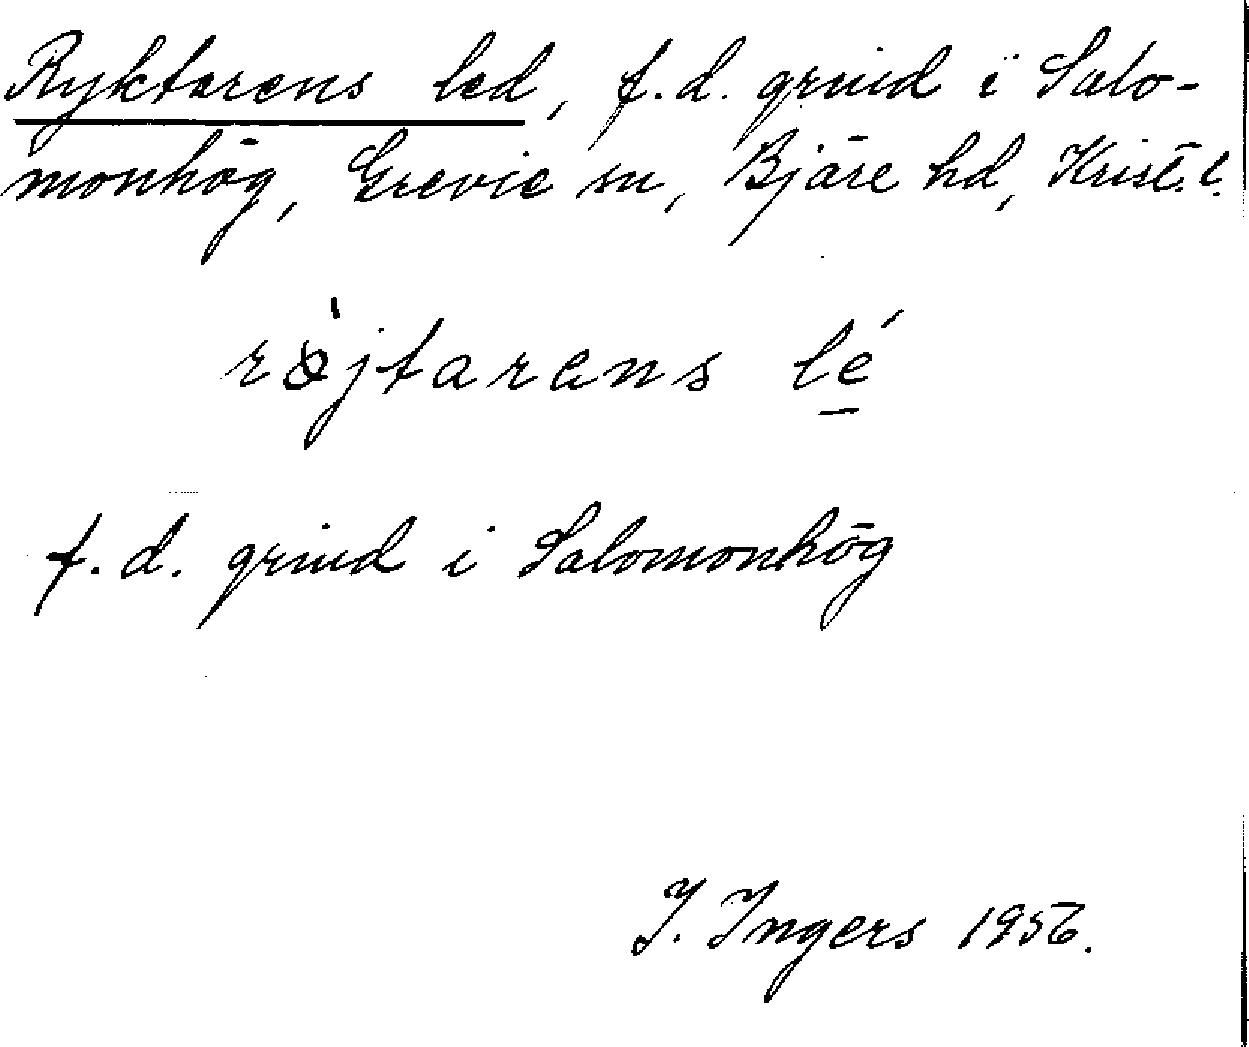 Ryktarens led, f.d. grind i Salo-
monhög, Grevie sn, Bjäre hd, Krist. l.
röjtarens lé
f. d. grind i Salomonhög
I. Ingers 1956.